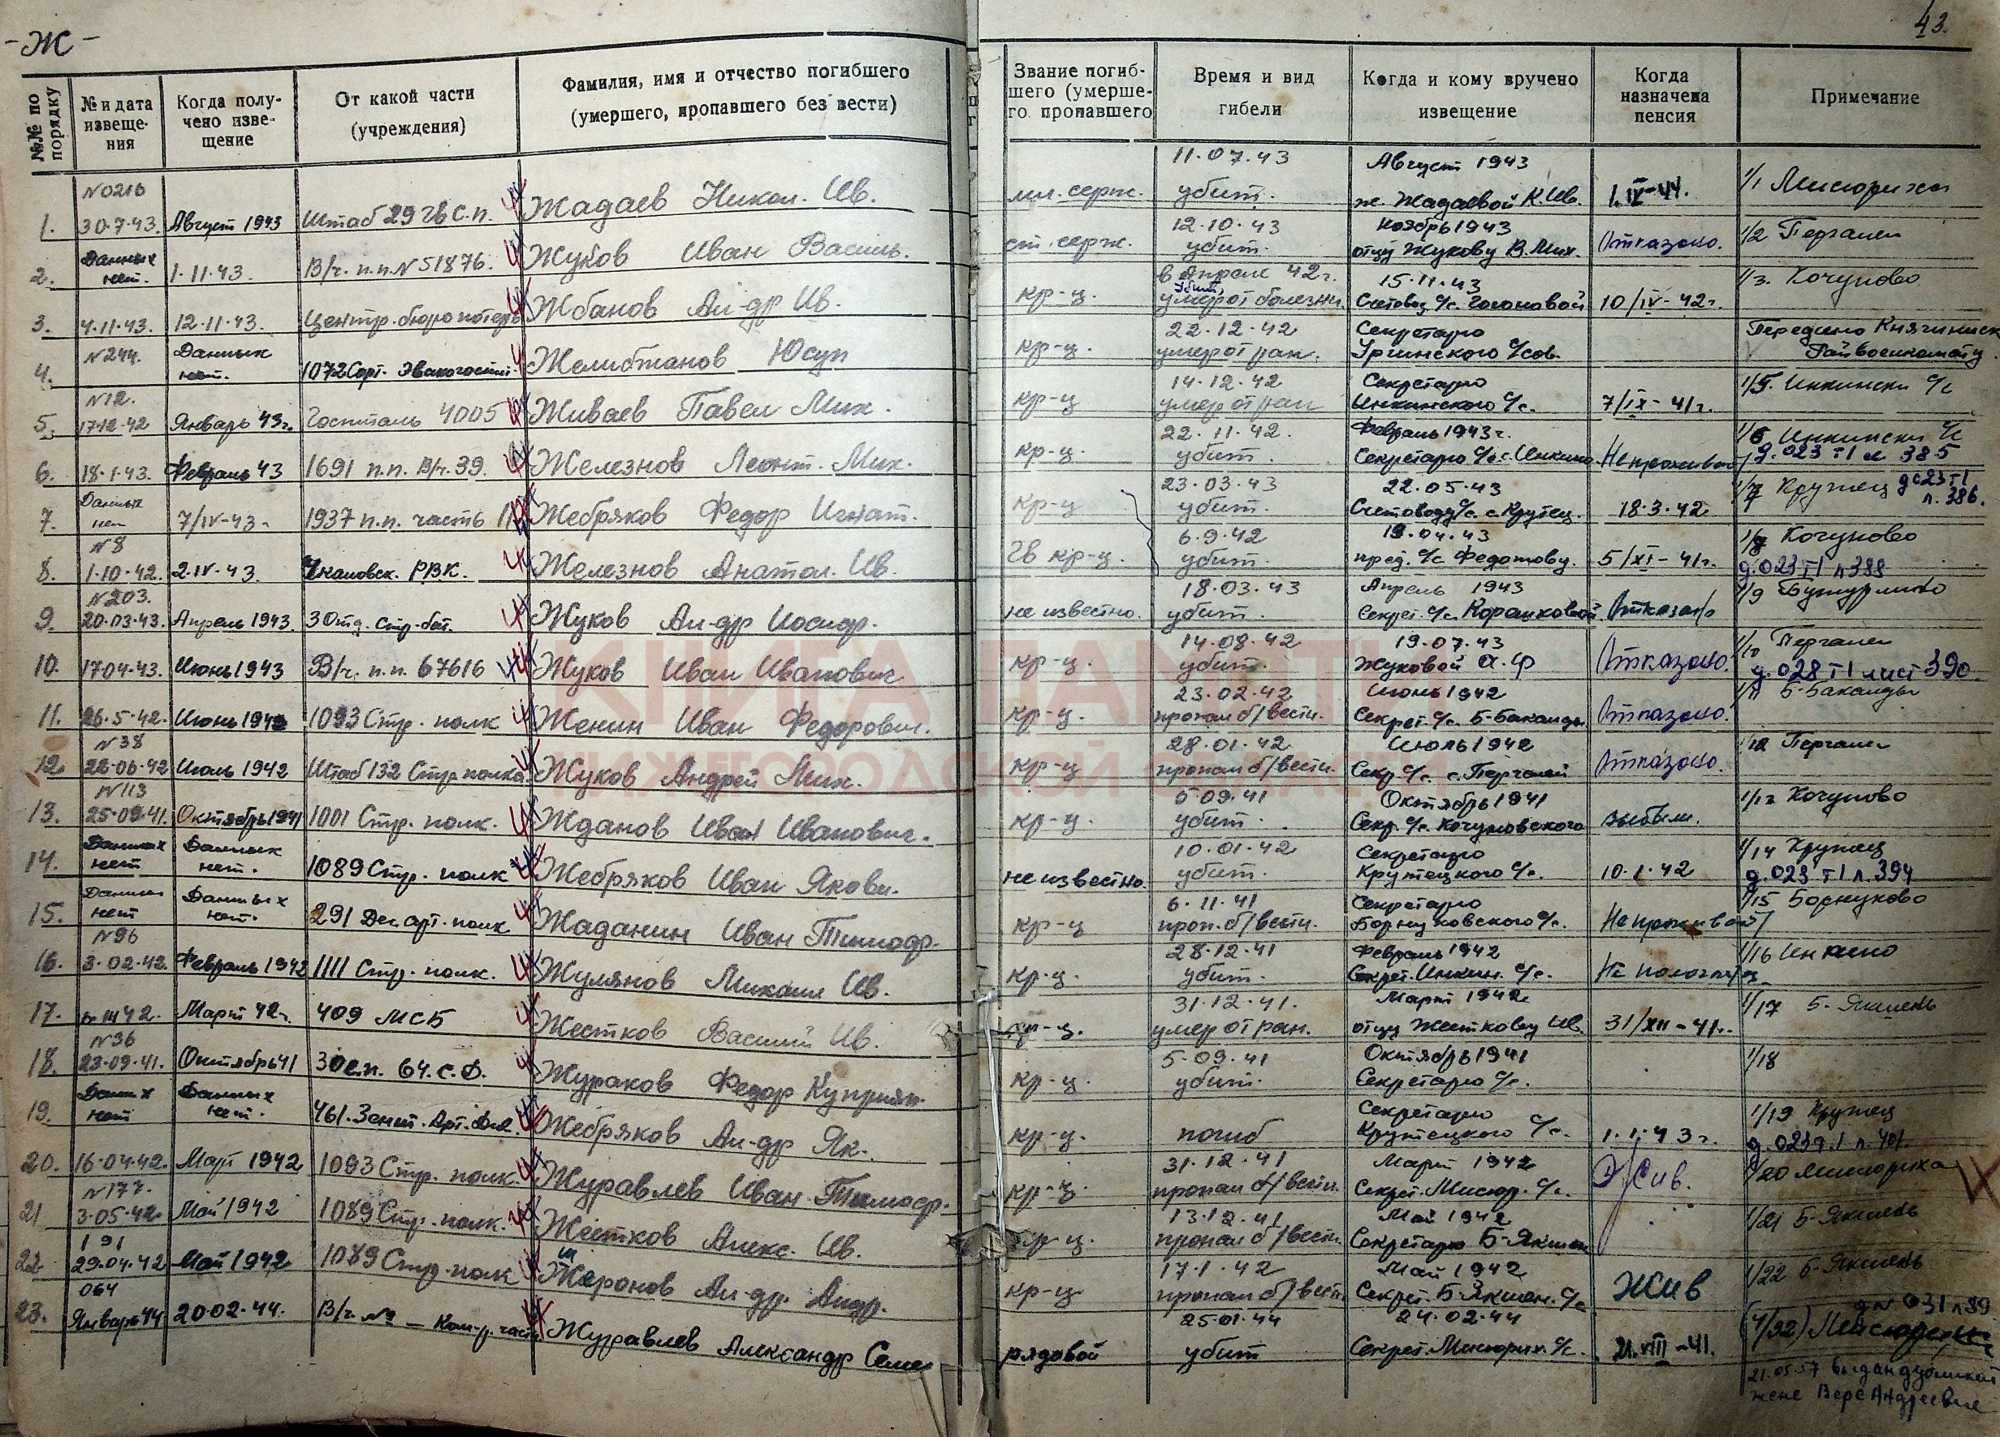 -Ж-
43.
№№ по порядку
№ и дата извеще-ния
Когда полу-чено изве-щение
От какой части (учреждения)
Фамилия, имя и отчество погибшего (умершего, пропавшего без вести)
Звание погиб-шего (умерше-го, пропавшего
Время и вид гибели
Когда и кому вручено извещение
Когда назначена пенсия
Примечание
1. №0216 30.7.43. Август 1943 Штаб 29 гв с.п. Жадаев Никол. Ив. мл. серж. 11.07.43 убит. Август 1943 ж. Жадаевой К. Ив. 1.IV-44. 1/1
2. Данных нет. 1.11.43. В/ч. п.п. № 51876. Жуков Иван Василь. ст. серж. 12.10.43 убит. Ноябрь 1943 отцу Жукову В. Мих. Отказано. 1/2
3. 4.11.43. 12.11.43. Центр. бюро потерь Жбанов Ал-др Ив. кр-ц. в Апреле 42 г. умер от болезни 15.11.43 Счетовод с/с. Гогоновой 10/IV-42г. 1/3. Кочуново
4. №244. Данных нет. 1072 Сорт. Эвакогоспит. Желибжанов Юсуп кр-ц. 22.12.42 умер от ран. Секретарю с/сов. Передано Княгининск. Райвоенкомату.
5. №12. 17.12.42 Январь 43г. Госпиталь 4005 Живаев Павел Мих. кр-ц 14.12.42 умер от ран Секретарю Инкинского с/с. 7/IX-41г. 1/5. Инкински с/с
6. 18.1.43. Февраль 43 1691 п.п. В/ч. 39. Железнов Леонт. Мих. кр-ц. 22.11.42. убит. Февраль 1943г. Секретарю с/с. с. Инкино 1/6 Инкински с/с д. 023 т1 л 385
7. Данных нет 7/IV-43. 1937 п.п. часть Жебряков Федор Игнат. кр-ц 23.03.43 убит. 22.05.43 Счетоводу с/с. с. Крутец. 18.3.42 1/7 Крутец д 023 т1 л. 386.
8. №8 1.10.42. 2.IV.43. Чкаловск. РВК. Железнов Анатол. Ив. Гв кр-ц. 6.9.42 убит. 19.04.43 пред. с/с Федотову. 5/XI-41г. 1/8 Кочуново
9. №203. 20.03.43. Апрель 1943. 3 отд. Стр. бат. Жуков Ал-др Иосифр. не известно. 18.03.43 убит. Апрель 1943 Секрет. с/с. Отказано 1/9 Бутурлино
10. 17.04.43. Июнь 1943 В/ч. п.п. 67616 Жуков Иван Иванович кр-ц. 14.08.42 убит. 19.07.43 Жуковой А.Ф Отказано. 1/10 д. 028 т1 лист 390
11. 26.5.42. Июнь 1942 1093 Стр. полк Женин Иван Федорович. кр-ц. 23.02.42 пропал б/вести. Июнь 1942 Секрет. с/с. Б-Бакалды Отказано. 1/11 Б-Бакалды
12. №38 22.06.42 Июль 1942 Штаб 132 Стр. полка Жуков Андрей Мих. кр-ц 28.01.42 пропал б/вести. Июль 1942 Секр. с/с. Отказано. 1/12
13. №113 25.09.41. Октябрь 1941 1001 Стр. полк. Жданов Иван Иванович. кр-ц. 5.09.41 убит. Октябрь 1941 Секр. с/с. Кочуновского выбыли. Кочуново
14. Данных нет Данных нет. 1089 Стр. полк Жебряков Иван Яковл. не известно. 10.01.42 убит. Секретарю Крутецкого с/с. 10.1.42 1/14 Крутец д. 023 т1 л. 394
15. Данных нет Данных нет. 291 Дес. арт. полк Жаданин Иван Тимофр. кр-ц 6.11.41 проп. б/вести. Секретарю Борнуковского с/с. Не проживает 1/15 Борнуково
16. №96 3.02.42. Февраль 1942 1111 Стр. полк. Жулянов Михаил Ив. кр-ц. 28.12.41 убит. Февраль 1942 Секрет. Инкин. с/с. 1/16 Инкино
17. Март 42г. 409 МСБ Жестков Василий Ив. кр-ц. 31.12.41. умер от ран. Март 1942 отцу Жесткову Ив. 31/XII-41г. 1/17 Б-Якшень
18. №36 23.09.41. Октябрь 41 30 с.п. 64. С.Д. Жураков Федор Куприян. кр-ц. 5.09.41 убит. Октябрь 1941 Секретарю с/с. 1/18
19. Данных нет Данных нет. 461. Зенит. Арт. Див. Жебряков Ал-др Як. кр-ц. погиб Секретарю Крутецкого с/с. 1.1.43г. 1/19 Крутец д. 023 т.1 л. 401.
20. 16.04.42. Март 1942 1093 Стр. полк. Журавлев Иван Тимофр. кр-ц. 31.12.41 пропал б/вести. Март 1942 Секрет. Мисюр. с/с. Жив. 1/20 Мисюриха
21 №177. 3.05.42. Май 1942 1089 Стр. полк. Жестков Алекс. Ив. кр-ц. 13.12.41 пропал б/вести. Май 1942 Секретарю Б-Якшен 1/21 Б-Якшень
22 191 29.04.42 Май 1942 1089 Стр. полк Жаронов Ал-др. Андр. кр-ц 17.1.42 пропал б/вести Май 1942 Секрет. Б-Якшен. с/с Жив 1/22 Б-Якшень
23. 064 Январь 44 20.02.44. В/ч. № — Ком-р. части Журавлев Александр Семе рядовой 25.01.44 убит 24.02.44 Секрет. Мисюрих. с/с. 21.VIII-41. 031 л 89
21.05.57 выдан дубликат жене Вере Андреевне
КНИГА ПАМЯТИ
НИЖЕГОРОДСКОЙ ОБЛАСТИ